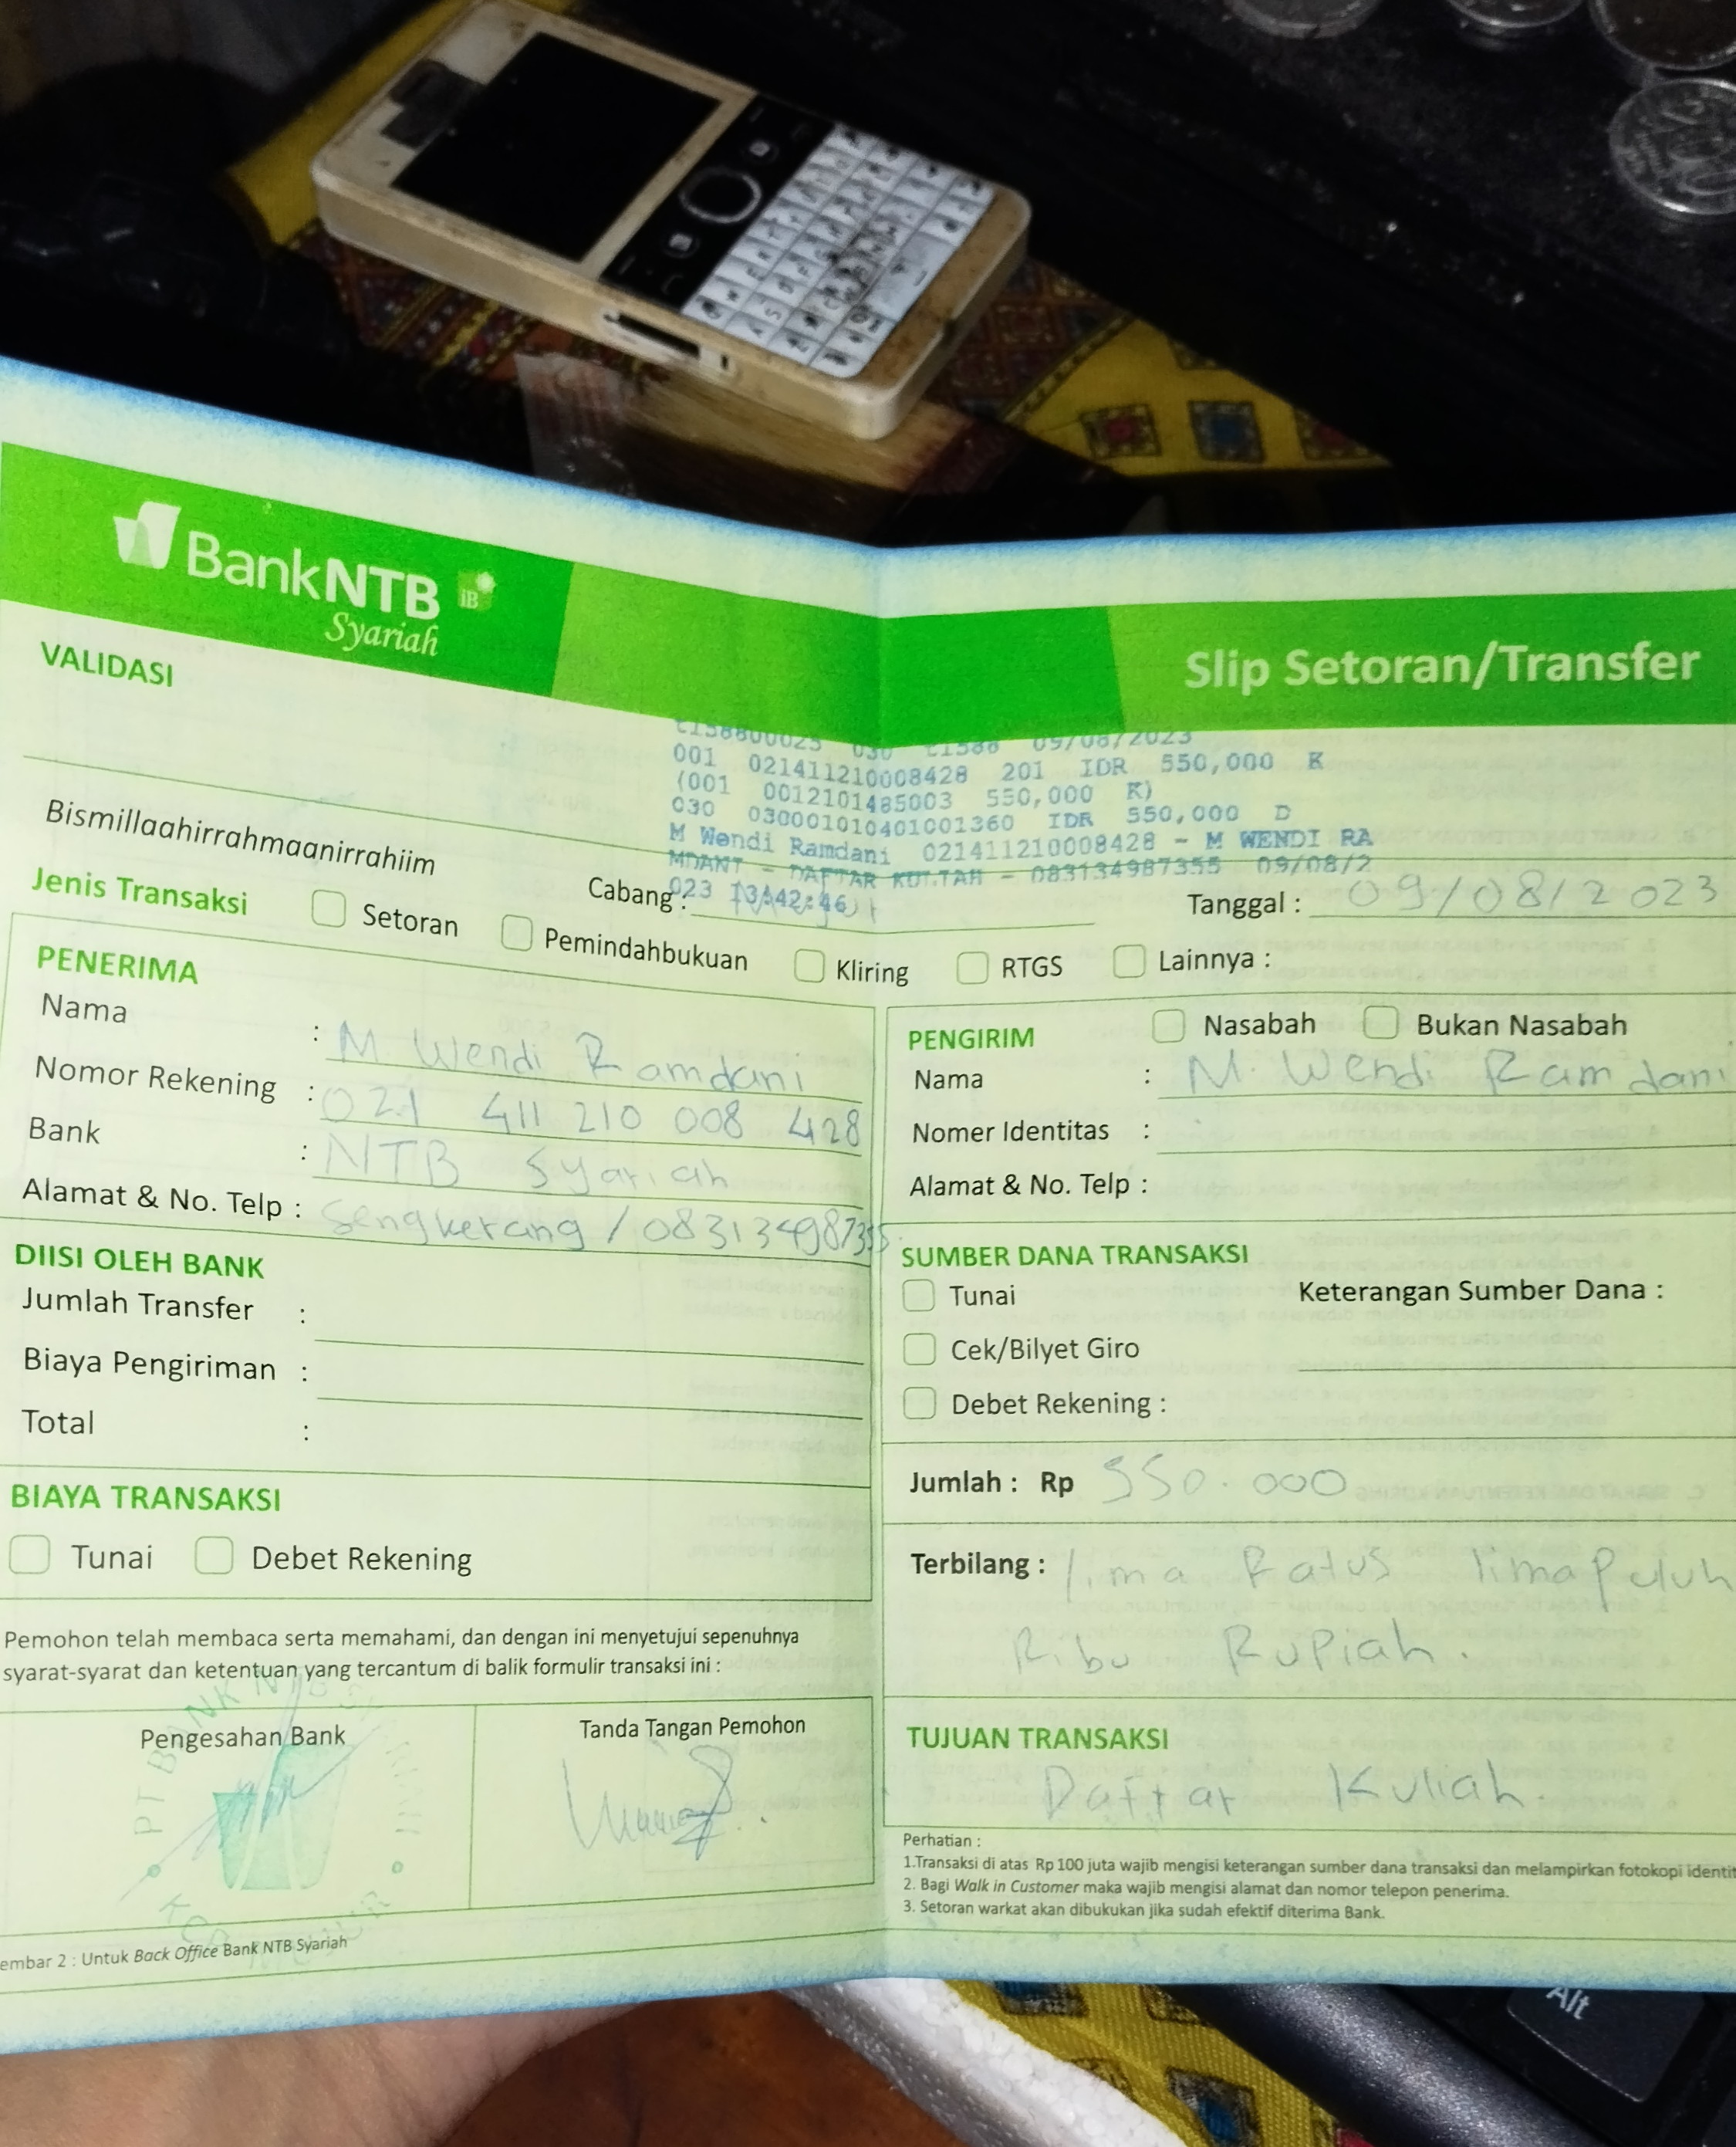 BankNTB iB
Syariah
Slip Setoran/Transfer
VALIDASI
09/08/2023
001 021411210008428 201 IDR 550,000 K
(001 0012101485003 550,000 K)
030 030001010401001360 IDR 550,000 D
M Wendi Ramdani 021411210008428 - M WENDI RA
MDANI - DAFTAR KULIAH - 083134987355 09/08/2
023 13:42:46
Bismillaahirrahmaanirrahiim
Cabang :
Tanggal : 09/08/2023
Jenis Transaksi Setoran Pemindahbukuan Kliring RTGS Lainnya :
PENERIMA
Nama : M. Wendi Ramdani
Nomor Rekening : 021 411 210 008 428
Bank : NTB Syariah
Alamat & No. Telp : Sengkerang / 083134987355
PENGIRIM Nasabah Bukan Nasabah
Nama : M. Wendi Ramdani
Nomer Identitas :
Alamat & No. Telp :
DIISI OLEH BANK
Jumlah Transfer :
Biaya Pengiriman :
Total :
SUMBER DANA TRANSAKSI
Tunai Keterangan Sumber Dana :
Cek/Bilyet Giro
Debet Rekening :
BIAYA TRANSAKSI
Tunai Debet Rekening
Jumlah : Rp 550.000
Terbilang : lima Ratus limapuluh
Ribu Rupiah.
Pemohon telah membaca serta memahami, dan dengan ini menyetujui sepenuhnya
syarat-syarat dan ketentuan yang tercantum di balik formulir transaksi ini :
Pengesahan Bank
Tanda Tangan Pemohon
PT BANK NTB SYARIAH
TUJUAN TRANSAKSI
Daftar Kuliah.
Perhatian :
1.Transaksi di atas Rp 100 juta wajib mengisi keterangan sumber dana transaksi dan melampirkan fotokopi identit
2. Bagi Walk in Customer maka wajib mengisi alamat dan nomor telepon penerima.
3. Setoran warkat akan dibukukan jika sudah efektif diterima Bank.
embar 2 : Untuk Back Office Bank NTB Syariah
Alt